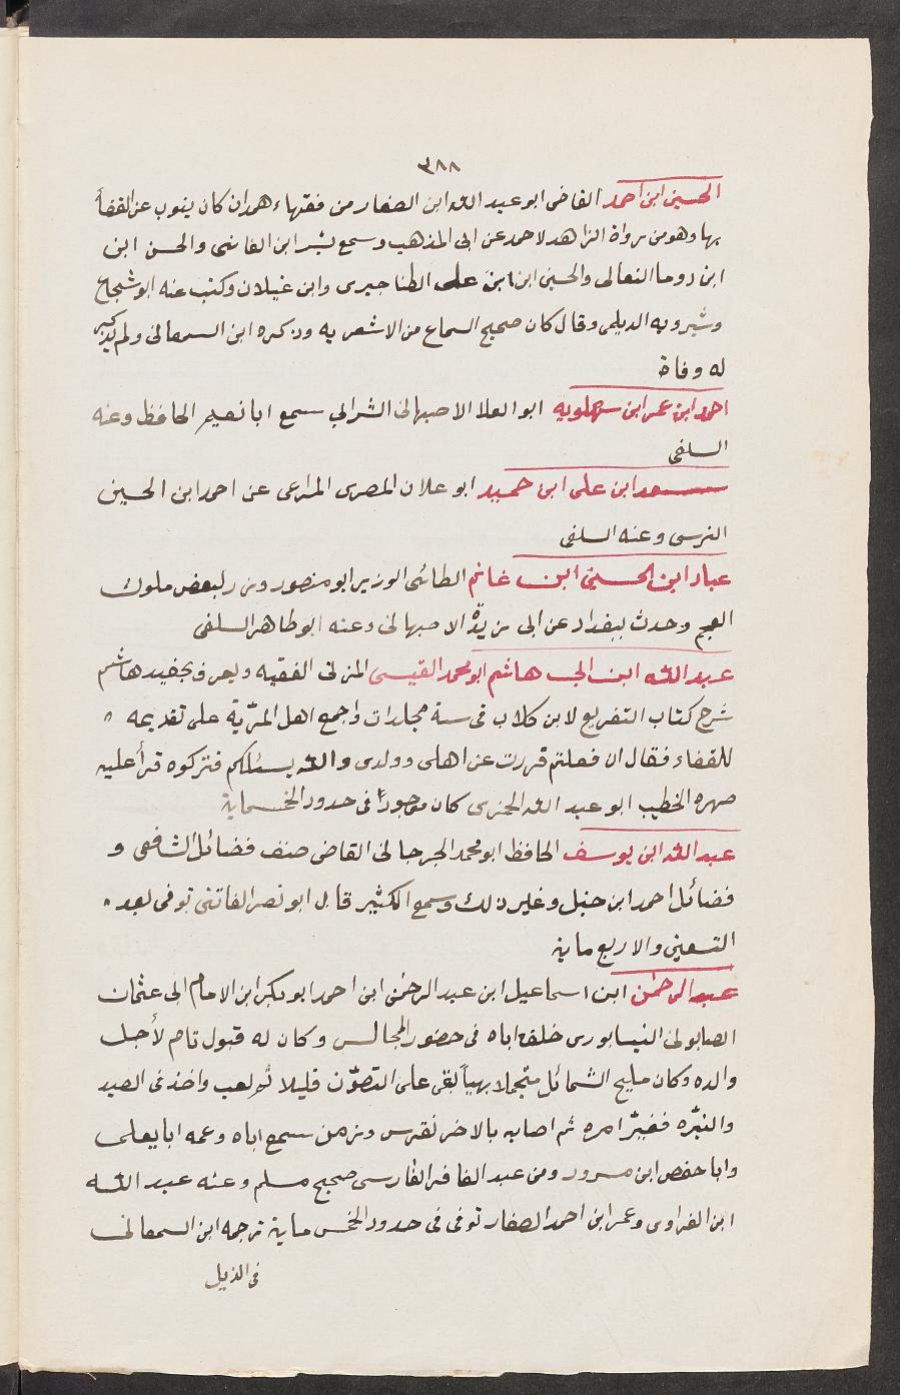 ٣٨٨
الحسين ابن احمد القاضى ابو عبد الله ابن الصفار من فقهاء همدان كان ينوب عن القضاة
بها وهو من رواة الزاهد لاحمد عن ابى المذهب وسمع بشر ابن الفاسى والحسن ابن
ابن دوما النعالى والحسين ابن ابن على الطناجيرى وابن غيلان وكتب عنه ابو شجاع
وشيرويه الديلمى وقال كان صحيح السماع من الاشعريه وذكره ابن السمعانى ولم يذكر
له وفاة
احمد ابن عمر ابن سهلويه ابو العلا الاصبهانى الشرابي سمع ابا نعيم الحافظ وعنه
السلفى
سعد ابن على ابن حميد ابو علان المصرى المراعى عن احمد ابن الحسين
النرسى وعنه السلفى
عباد ابن الحسين ابن غانم الطائى الوزير ابو منصور وزر لبعض ملوك
العجم وحدث ببغداد عن ابى ريذة الاصبهانى وعنه ابو طاهر السلفى
عبد الله ابن ابي هاشم ابو محمد القيسى المرتى الفقيه ويعرف بحفيد هاشم
شرح كتاب التفريع لابن كلاب فى ستة مجلدات واجمع اهل المريّة على تقديمه
للقضاء فقال ان فعلتم فررت عن اهلى وولدى والله يسئلكم فتركوه قرأ عليه
صهره الخطيب ابو عبد الله الحمزى كان موجوداً فى حدود الخمسماية
عبد الله ابن يوسف الحافظ ابو محمد الجرجانى القاضى صنف فضائل الشافعى و
فضائل احمد ابن حنبل وغير ذلك وسمع الكثير قال ابو نصر الفاتنى توفى بعد
التسعين والاربع ماية
عبد الرحمن ابن اسماعيل ابن عبد الرحمن ابن احمد ابو بكر ابن الامام ابى عثمان
الصابونى النيسابورى خلف اباه فى حضور المجالس وكان له قبول تام لأجل
والده وكان مليح الشمائل متجملا بهياً بقى على التصوّن قليلا ثم لعب واخذ فى الصيد
والتنزّه فتغيّر امره ثم اصابه بالاخر نقرس وزمن سمع اباه وعمه ابا يعلى
وابا حفص ابن مسرور ومن عبد الغافر الفارسى صحيح مسلم وعنه عبد الله
ابن الفراوى وعمر ابن احمد الصفار توفى فى حدود الخمس ماية ترجمه ابن السمعانى
فى الذيل